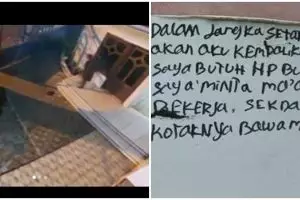 DALAM JANGKA SETA
AKAN AKU KEMBALIK
SAYA BUTUH HP BU
SAYA MINTA MO'O
BEKERJA. SEKDA
KOTAKNYA BAWAM